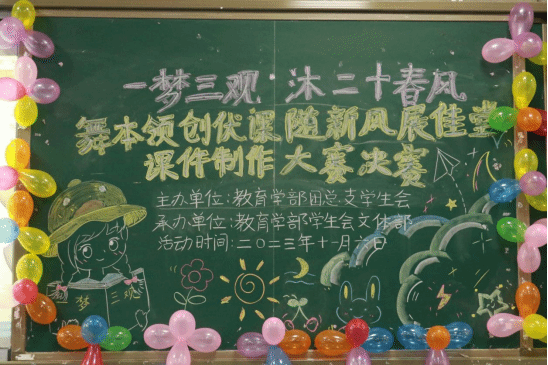 一梦三观 沐二十春风
舞本领创优课 随新风展佳堂
课件制作大赛决赛
主办单位:教育学部团总支学生会
承办单位:教育学部学生会文体部
活动时间:二〇二三年十一月六日
梦 三观